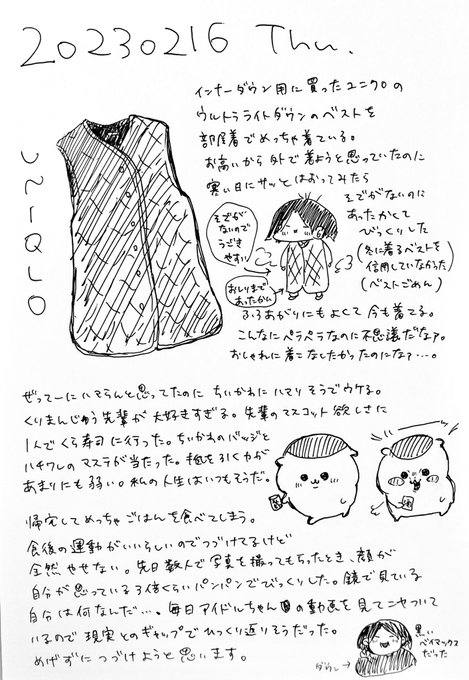 20230216 Thu.
インナーダウン用に買ったユニクロの
ウルトラライトダウンのベストを
部屋着でめっちゃ着ている。
お高いから外で着ようと思っていたのに
寒い日にサッとはおってみたら
そでがないのに
あったかくて
びっくりした
(冬に着るベストを
信用していなかった)
(ベストごめん)
UNIQLO
そでが
ないので
うごき
やすい
おしりまで
あったかい
ふろあがりにもよくて今も着てる。
こんなにペラペラなのに不思議だなァ。
おしゃれに着こなしたかったのになァ…。
ぜってーにハマらんと思ってたのにちいかわにハマりそうでウケる。
くりまんじゅう先輩が大好きすぎる。先輩のマスコット欲しさに
1人でくら寿司に行った。ちいかわのバッジと
ハチワレのマステが当たった。推しを引く力が
あまりにも弱い。私の人生はいつもそうだ。
帰宅してめっちゃごはんを食べてしまう。
食後の運動がいいらしいのでつづけてるけど
全然やせない。先日数人で写真を撮ってもらったとき、顔が
自分が思っている3倍くらいパンパンでびっくりした。鏡で見ている
自分は何なんだ…。毎日アイドルちゃんの動画を見てニヤついて
いるので現実とのギャップでひっくり返りそうだった。
めげずにつづけようと思います。
黒い
ベイマックス
だった
ダウン→